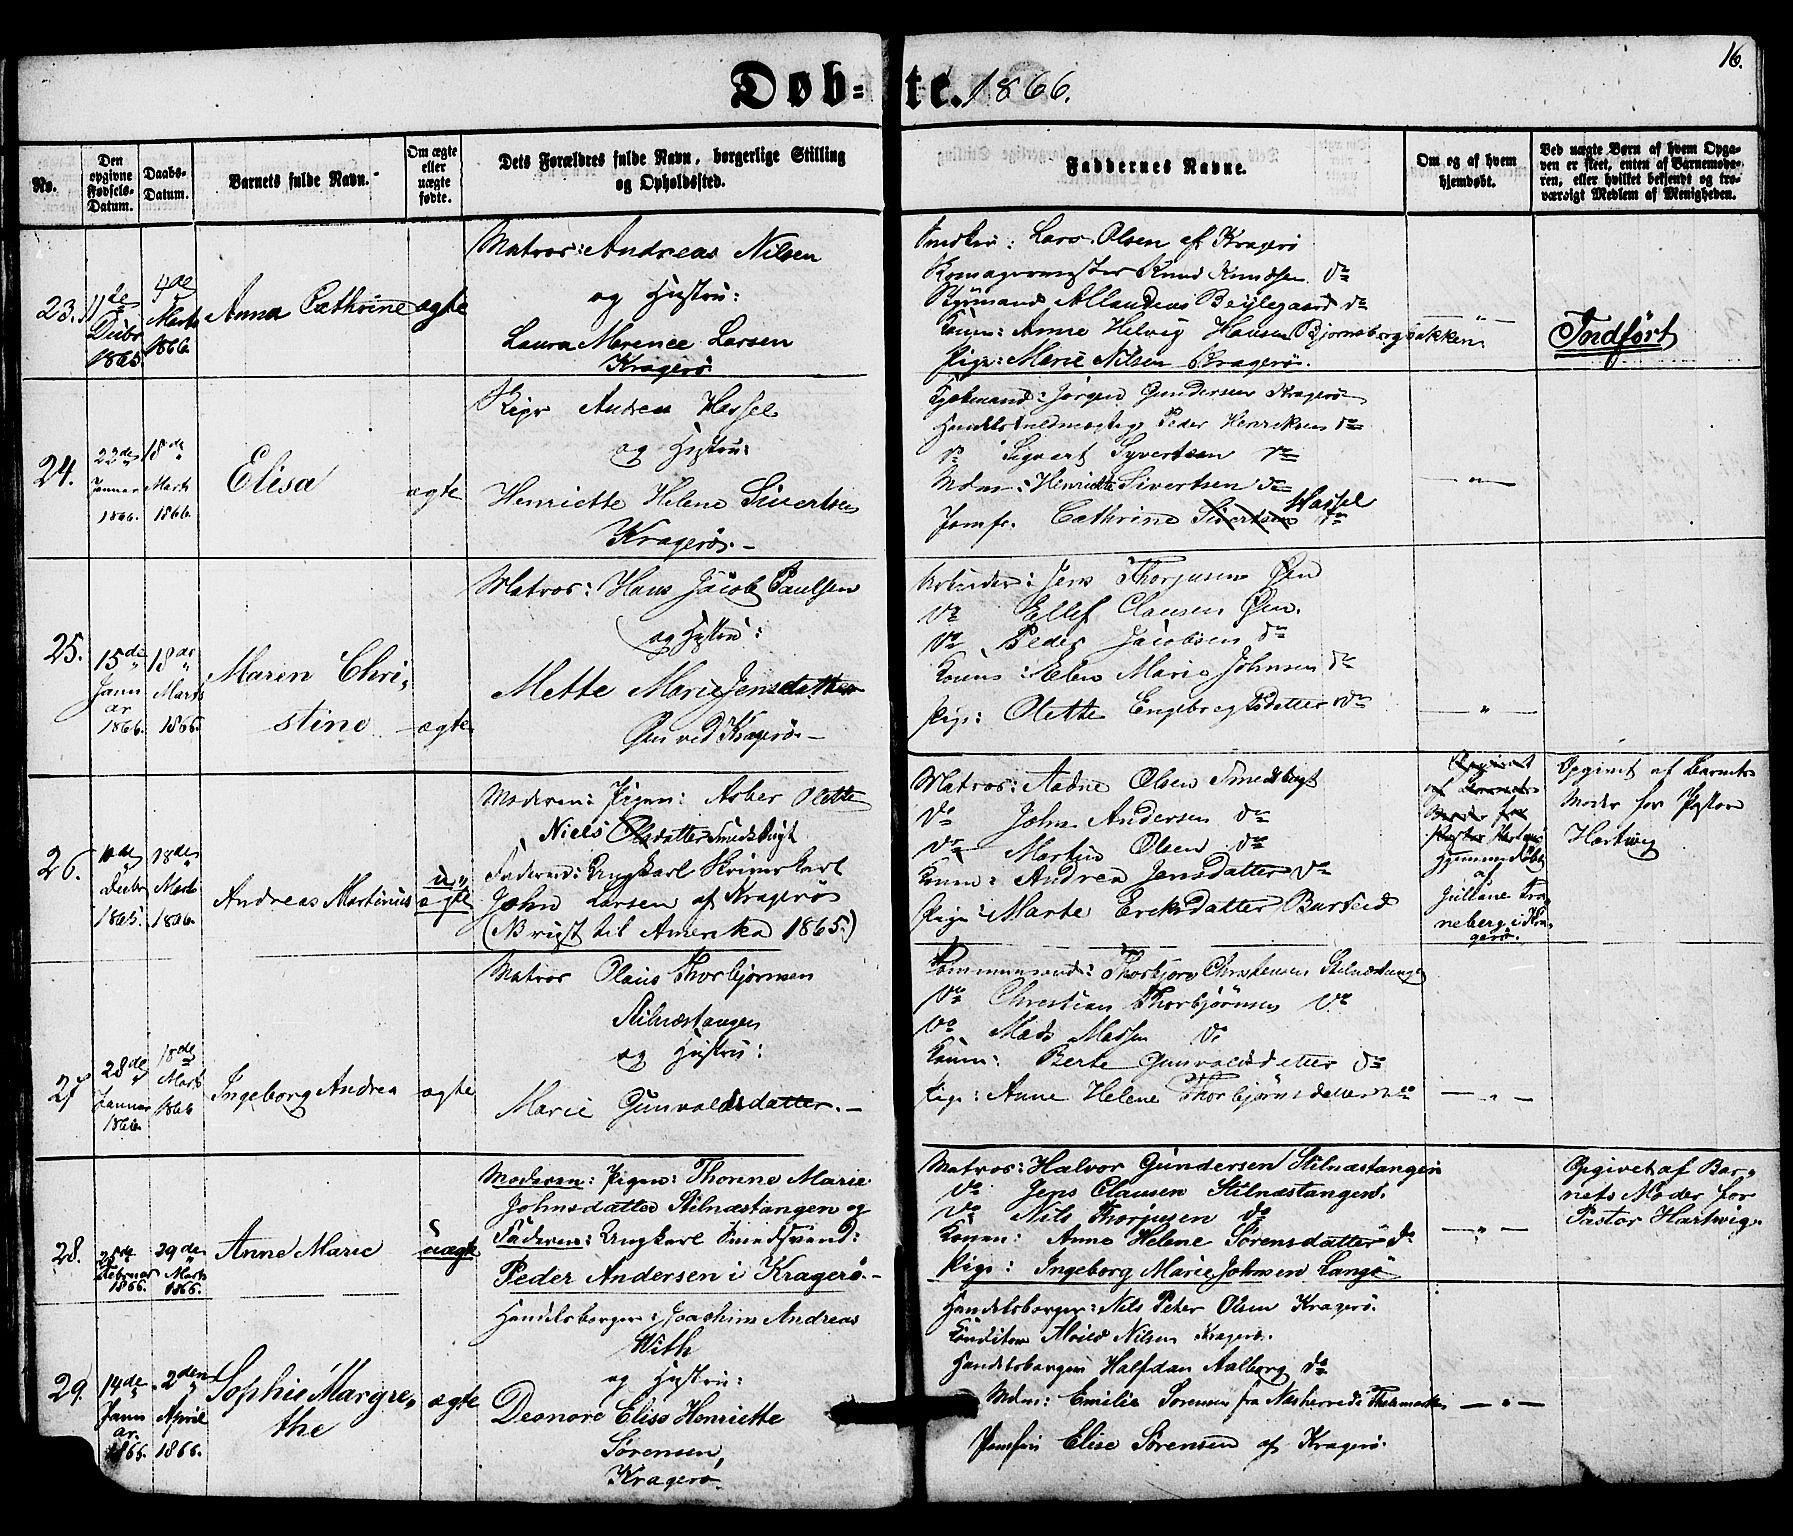 16.
Døb-te. 1866.
No.
Den opgivne Fødsels-Datum.
Daabs-Datum.
Barnets fulde Navn.
Om ægte eller uægte fødte.
Dets Forældres fulde Navn, borgerlige Stilling og Opholdssted.
Faddernes Navne.
Om og af hvem hjemdøbt.
Ved uægte Børn af hvem Opgaven er skeet, enten af Barnemoderen, eller hvilket bekjendt og troværdigt Medlem af Menigheden.
23.
11de
Decbr
1865.
4de
Marts
1866
Anna Cathrine
ægte
Matros: Andreas Nilsen
og Hustru:
Laura Merence Larsen
Kragerø
Lars Olsen af Kragerø
Knud Knudsen do
Konen: Anne Helvig Hansen Bjørnsbergbakken
Pige: Marie Nilsen Kragerø.
— " —
Indført
24.
23de
Januar
1866.
18de
Marts
1866.
Elisa
ægte
Andrea Hassel
og Hustru:
Henriette Helene Sivertsen
Kragerø. —
Kjøbmand: Jørgen Gundersen Kragerø
Handelsfuldmægtig Peder Henriksen do
do Sigvart Syvertsen do
Mdm: Henriette Sivertsen do
Jomfr. Cathrine Sivertsen Hassel do
— " —
25.
15de
Janu
ar
1866.
18de
Marts
1866.
Maren Chri-
stine
ægte
Matros: Hans Jacob Paulsen
og Hustru:
Mette Marie Jensdatter
Øen ved Kragerø —
Arbeider: Jens Thorjusen Øen
do Ellef Clausen Øen.
do Peder Jacobsen do
Konen: Elen Marie Johnsen do
Pige: Olette Engebregtsdatter do
— " —
26.
Decbr
1865.
18de
Marts
1866.
Andreas Martinus
u-
ægte
Moderen: Pigen: Asber Olette
Niels Olsdatter Smedsbugt
Faderen: Ungkarl
John Larsen af Kragerø
(N reist til Amerika 1865.)
Matros: Aadne Olsen Smedsbugt
do John Andersen do
do Martin Olsen do
Konen: Andrea Jensdatter do
Pige: Marte Ericksdatter
Opgivet
af Barnets
Moder for
Pastor Hartwig
Hjemmedøbt
af
Juliane Tro-
neberg i Kra-
gerø.
Opgivet af Barnets
Moder for Pastor
Hartwig
27
28de
Januar
1866.
18de
Marts
1866
Ingeborg Andrea
ægte
Matros Olaus Thorbjørnsen
Stilnæstangen
og Hustru:
Marie Gunvaldsdatter. —
Tømmermand: Thorbjørn Christensen Stilnæstangen
do Christian Thorbjørnsen do
do Mads Madsen do
Konen: Berte Gunvaldsdatter do
Pige: Anne Helene Thorbjørnsdatter do
— " —
28.
25de
Februar
1866.
29de
Marts
1866.
Anne Marie
uægte
Moderen: Pigen: Thorine Marie
Johnsdatter Stilnæstangen og
Faderen: Ungkarl
Peder Andersen i Kragerø. —
Matros: Halvor Gundersen Stilnæstangen
do Jens Clausen Stilnæstangen.
do Nils Thorjusen do
Konen: Anne Helene Sørensdatter do
Pige: Ingeborg Marie Johnsen Langø
— " —
Opgivet af Bar-
nets Moder for
Pastor Hartwig.
29.
14de
Janu
ar.
1866.
2den
April
1866.
Sophie Margre-
the
ægte
Handelsborger: Joachim Andreas
With
og Hustru:
Deonore Elise Henriette
Sørensen,
Kragerø.
Handelsborger: Nils Peter Olsen Kragerø.
Konditor Nilsen Kragerø.
Handelsborger Halfdan Aalborg do
Mdm: Emilie Sørensen fra Thelemarken
Jomfru Elise Sørensen af Kragerø.
— " —